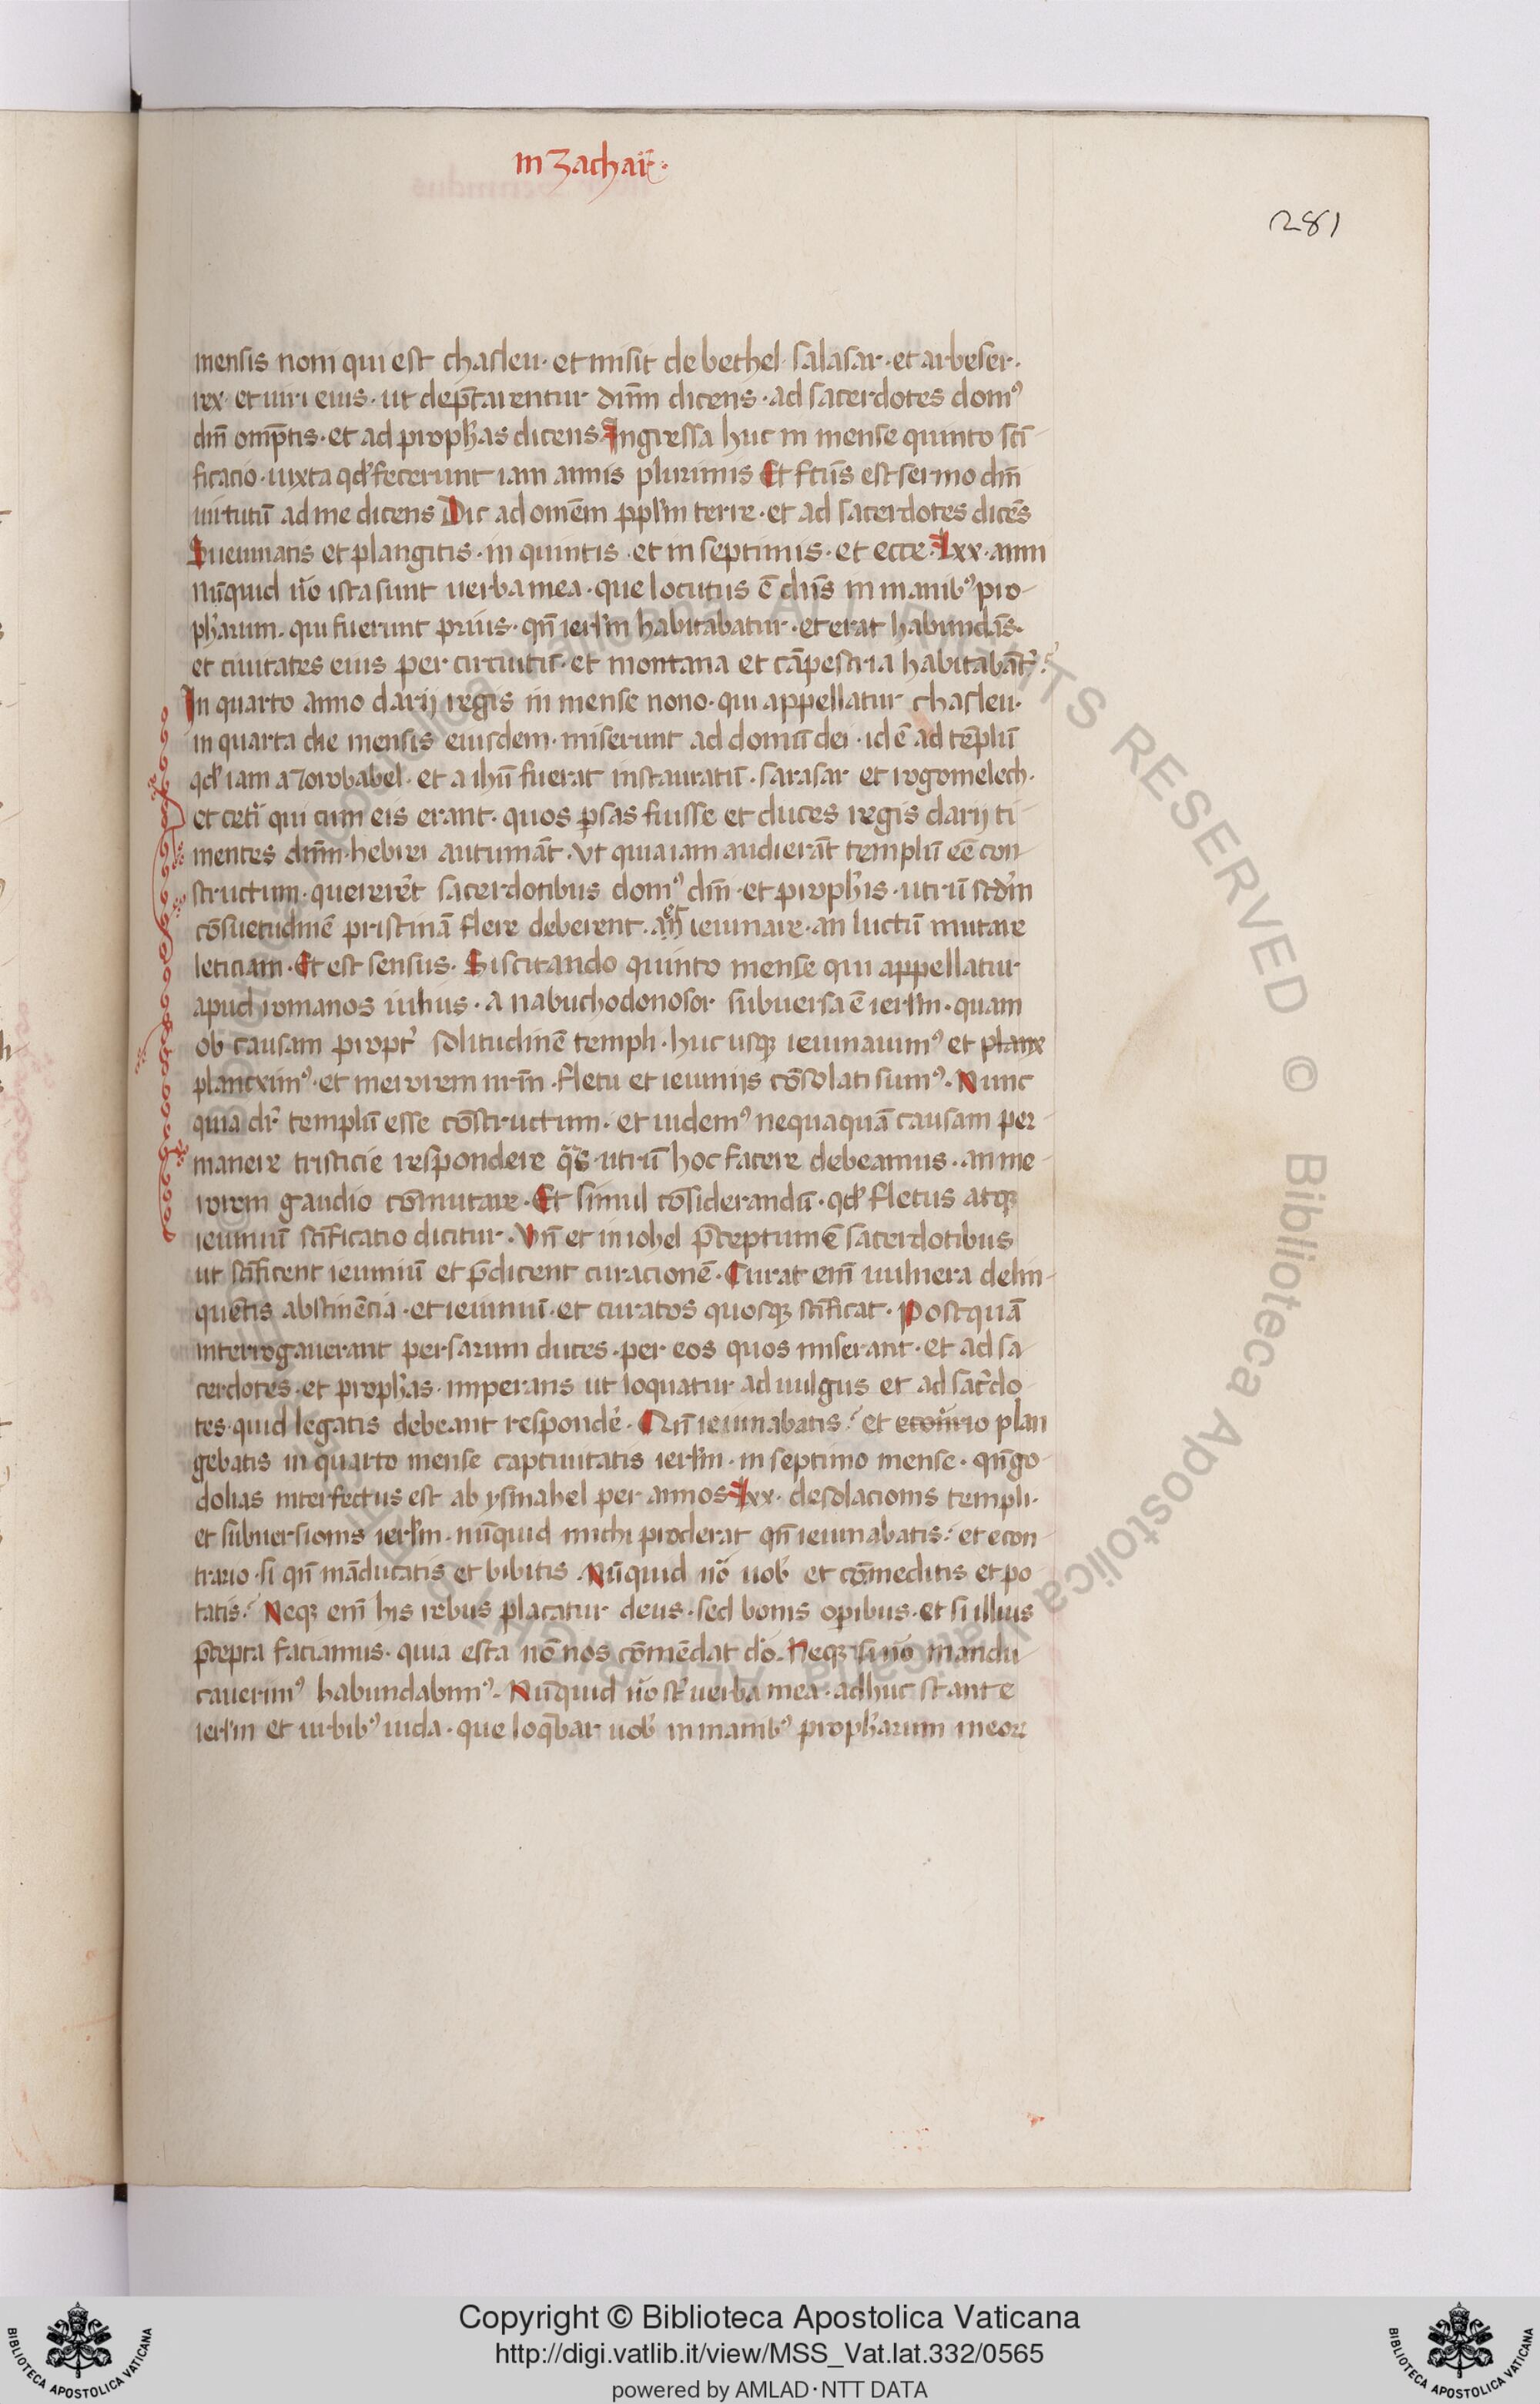 in Zachar̄.
281
mensis noni qui est chasleu· et misit de bethel· salasar· et arbeser·
rex· et uiri eius· ut dep̄tarentur dn̄m dicens· ad sacerdotes domꝰ
dn̄i omp̄tis· et ad proph̄as dicens Ingressa huc in mense quinto sc̄i
ficatio· iuxta qd̛ fecerunt iam annis plurimis Et fc̄us est sermo dn̄i
uirtutū ad me dicens Dic ad omēm ppl̄m terre· et ad sacerdotes dicēs
Si ieiunatis et plangitis· in quintis· et in septimis· et ecce· Lxx· anni
nūquid nō ista sunt uerba mea· que locutus ē dn̄s in manibꝰ pro-
ph̄arum· qui fuerunt prius· qn̄ ierl̄m habitabatur· et erat habundās·
et ciuitates eius per circuitū· et montana et cāpestria habitabāt᷑·
In quarto anno darij regis in mense nono· qui appellatur chasleu·
in quarta die mensis eiusdem· miserunt ad domū dei· id ē ad tēplū
qd̛ iam a Zorobabel· et a ihū fuerat instauratū· sarasar et rogomelech·
et cet̄i qui cum eis erant· quos p̱sas fuisse et duces regis darij ti-
mentes dn̄m· hebrei autumāt· Vt quia iam audierāt templū eē con-
structum· quererēt sacerdotibus domꝰ dn̄i· et proph̄is· utrū sc̄dm
cōsuetudinē pristinā flere deberent· et ieiunare· an luctū mutare
leticiam· Et est sensus· Siscitando quinto mense qui appellatur
apud romanos iulius· a nabuchodonosor subuersa ē ierl̄m· quam
ob causam propt᷑ solitudinē templi· huc usqꝫ ieiunauimꝰ et planx
planxximꝰ· et merorem nr̄m· fletu et ieiunijs cōsolati sumꝰ· Nunc
quia dr̄ templū esse cōstructum· et uidemꝰ nequaquā causam per-
manere tristicie respondere q̄s· utrū hoc facere debeamus· an me-
rorem gaudio cōmutare· Et simul cōsiderandū· qd̛ fletus atqꝫ
ieiuniū sc̄ificatio dicitur· Vn̄ et in iohel p̄ceptum ē sacerdotibus
ut sc̄ificent ieiuniū et p̄dicent curacionē· Curat enī uulnera delin-
quētis abstinēcia· et ieiuniū· et curatos quosqꝫ sc̄ificat· Postquā
interrogauerant persarum duces· per eos quos miserant· et ad sa
cerdotes· et proph̄as· imperans ut loquatur ad uulgus et ad sac̄do-
tes· quid legatis debeant respondē· Qn̄ ieiunabatis· et econ̄rio plan
gebatis in quarto mense captiuitatis ierl̄m· in septimo mense· qn̄ go-
dolias interfectus est ab ysmahel per annos Lxx· desolacionis templi·
et subuersionis ierl̄m· nūquid michi proderat qn̄ ieiunabatis· et econ-
trario· si qn̄ māducatis et bibitis· Nūquid nō uob̛ et cōmeditis et po
tatis· Neqꝫ enī his rebus placatur deus· sed bonis opibus· et si illius
p̄cepta faciamus· quia esca nō nos cōmēdat dō· Neqꝫ si nō mandu-
cauerimꝰ habundabimꝰ· Nūquid nō sт̄ uerba mea· adhuc stante
ierl̄m et urbibꝰ iuda· que loq̄bar uob̛ in manibꝰ proph̄arum meoꝝ
Copyright © Biblioteca Apostolica Vaticana
http://digi.vatlib.it/view/MSS_Vat.lat.332/0565
powered by AMLAD·NTT DATA